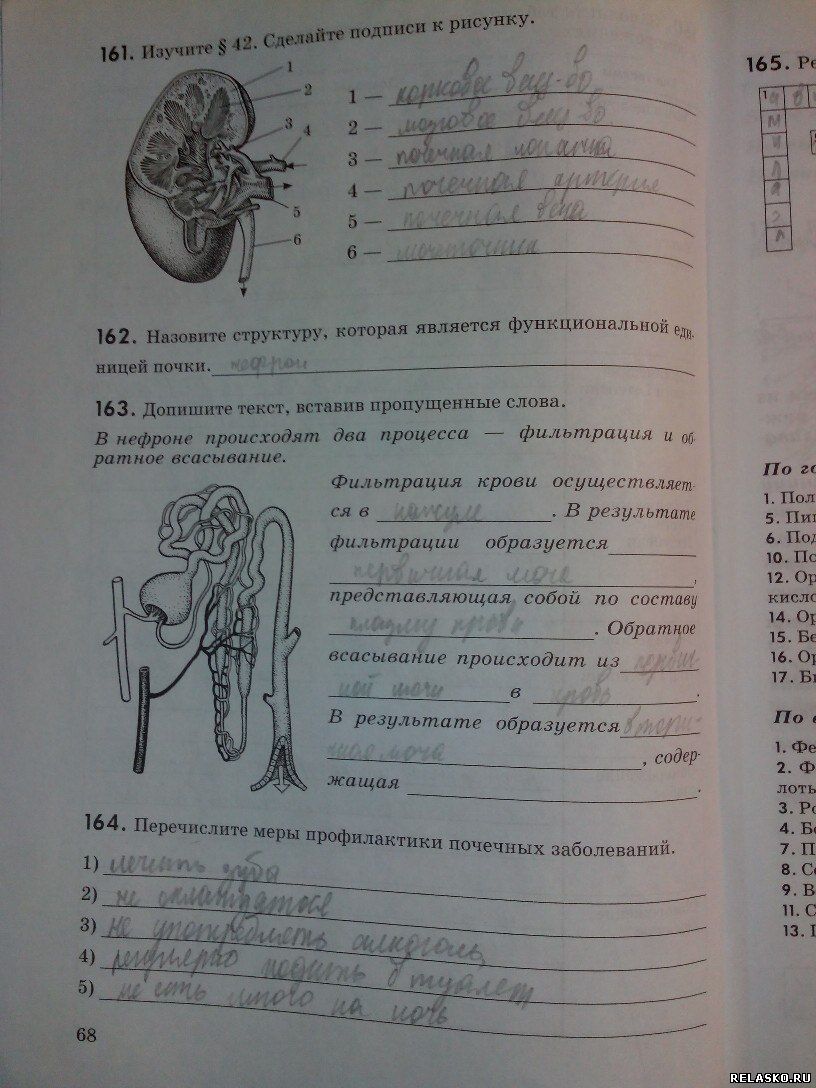 161. Изучите § 42. Сделайте подписи к рисунку.
1
2
3
4
5
6
1 — корковое вещ-во
2 — мозговое вещ-во
3 — почечная лоханка
4 — почечная артерия
5 — почечная вена
6 — мочеточник
162. Назовите структуру, которая является функциональной еди-
ницей почки. нефрон
163. Допишите текст, вставив пропущенные слова.
В нефроне происходят два процесса — фильтрация и об-
ратное всасывание.
Фильтрация крови осуществляет-
ся в капсуле . В результате
фильтрации образуется
первичная моча ,
представляющая собой по составу
плазму крови . Обратное
всасывание происходит из первич-
ной мочи в кровь .
В результате образуется втори-
чная моча , содер-
жащая .
164. Перечислите меры профилактики почечных заболеваний.
1) лечить зубы
2) не охлаждаться
3) не употреблять алкоголь
4) регулярно ходить в туалет
5) не есть много на ночь
68
165. Ре
1
По го
1. Пол
5. Пи
6. Под
10. По
12. Ор
кисло
14. Ор
15. Бе
16. Ор
17. Б
По в
1. Фе
2. Ф
лоты
3. Ро
4. Бо
7. П
8. Со
9. В
11. С
13. Г
RELASKO.RU